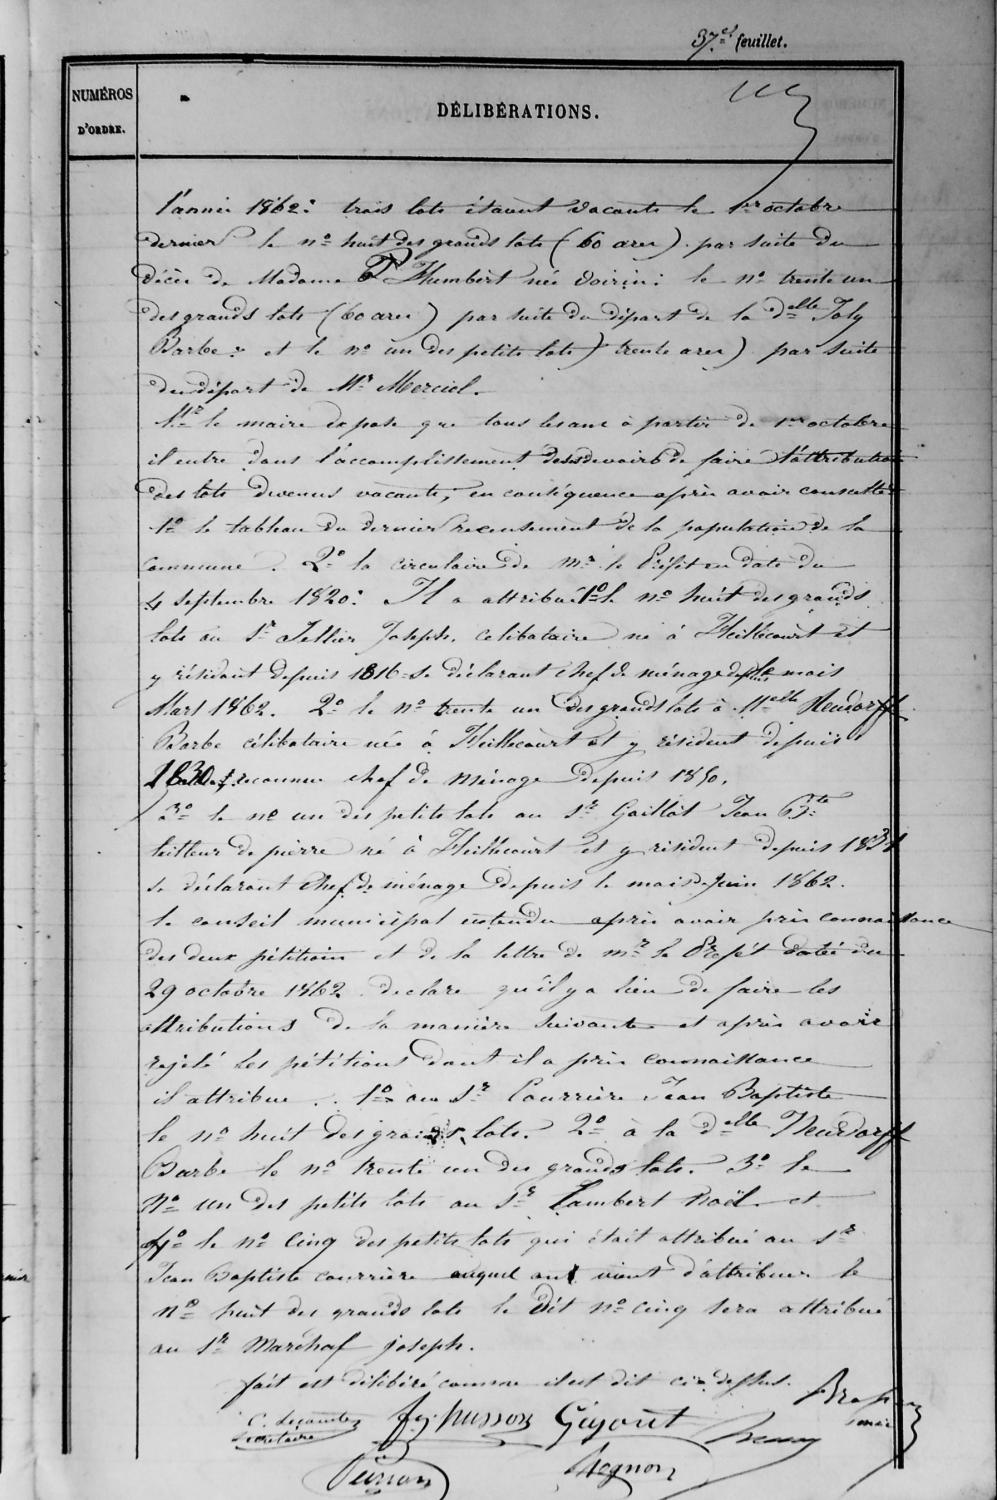 37.e feuillet.
NUMÉROS
D'ORDRE.
DÉLIBÉRATIONS.
l'année 1862: trois lots étaient vacants le 1er octobre
dernier le no huit des grands lots (60 ares) par suite du
décès de Madame Humbert née Voirin: le no trente un
des grands lots (60 ares) par suite du départ de la delle Joly
Barbe: et le no un des petits lots) trente ares) par suite
du départ de Mr Merciel.
Mr le maire expose que tous les ans à partir de 1er octobre
il entre dans l'accomplissement de ses devoirs de faire l'attribution
des lots devenus vacants, en conséquence après avoir consulté
1o le tableau du dernier recensement de la population de la
commune. 2o la circulaire de mr le Préfet en date du
4 septembre 1820: Il a attribué 1o le no huit des grands
lots au Sr Tellier Joseph, celibataire né à Heillecourt et
y résidant depuis 1816 se déclarant chef de ménage depuis le mois
Mars 1862. 2o le no trente un des grands lots à Melle Neudorff
Barbe célibataire née à Heillecourt et y résident depuis
1830 reconnue chef de ménage depuis 1850.
3o le no un des petits lots au Sr Gaillot Jean Bte
tailleur de pierre né à Heillecourt et y résident depuis 1831
se déclarant chef de ménage depuis le mois de Juin 1862.
le conseil municipal entendu après avoir pris connaissance
des deux pétitions et de la lettre de mr le Préfet datée du
29 octobre 1862 declare qu'il y a lieu de faire les
attributions de la manière suivante et après avoir
rejeté les pétitions dont il a pris connaissance
il attribue. 1o au Sr Courrière Jean Baptiste
le no huit des grands lots. 2o à la delle Neudorff
Barbe le no trente un des grands lots. 3o le
No un des petits lots au Sr Lambert Noël et
4o le no Cinq des petits lots qui était attribué au Sr
Jean Baptiste courrière auquel on vient d'attribuer le
no huit des grands lots le dit no cinq sera attribué
au Sr Maréchal joseph.
fait et délibéré comme il est dit ci-dessus.
C. Lecomte
Secretaire
husson
Gigout
maire